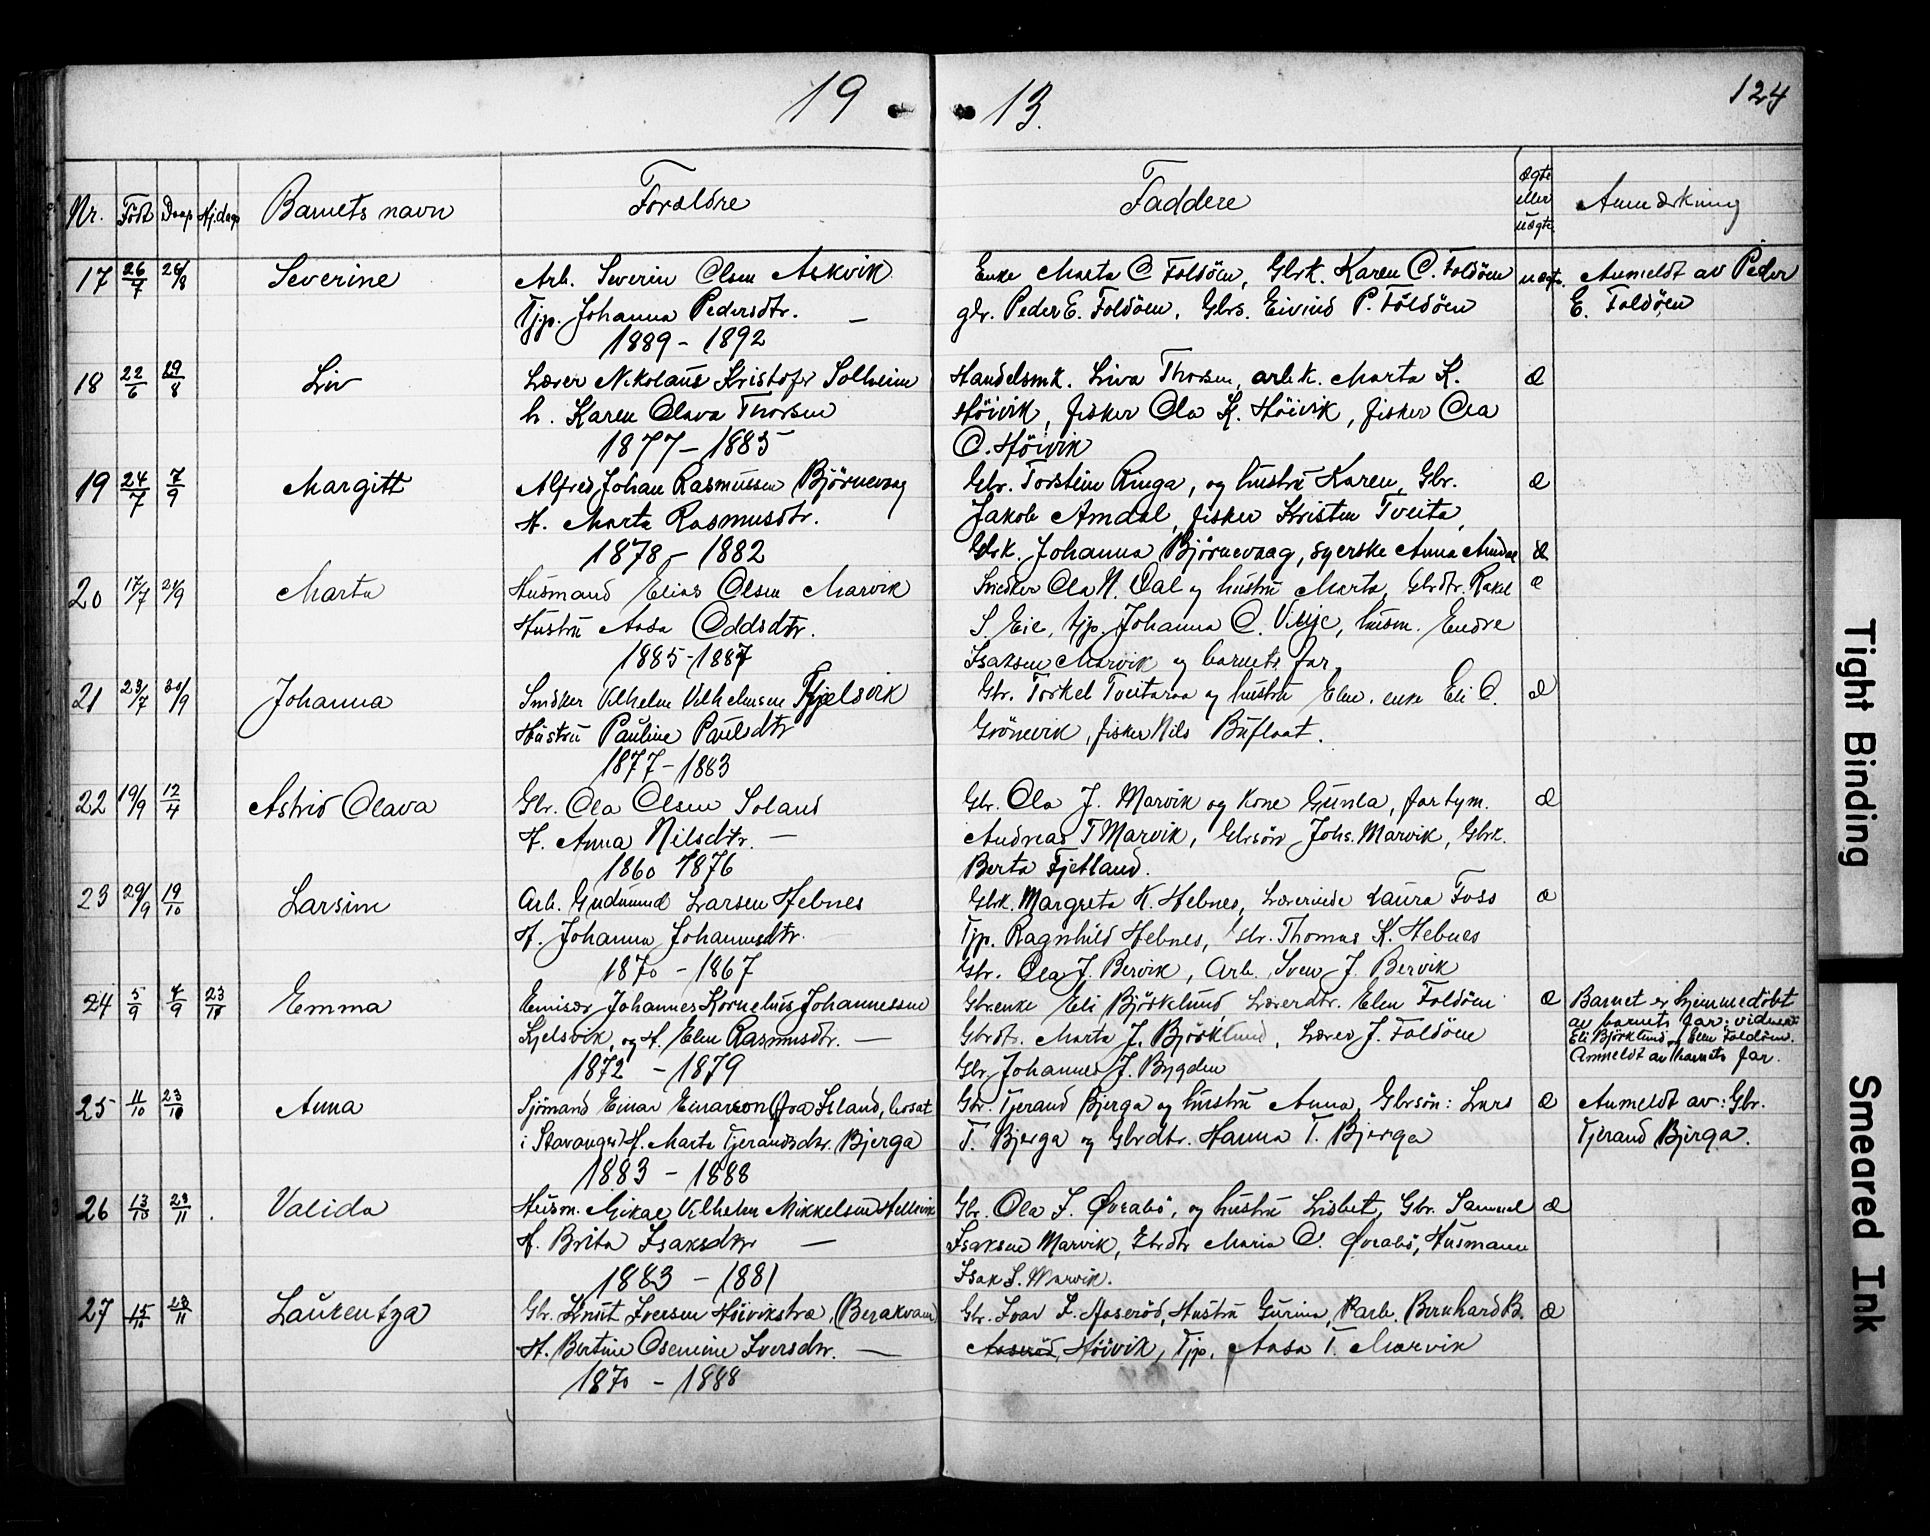 19 13.
124
Nr. Födt Daap Hjdap Barnets navn Forældre Faddere ægte eller uægte Anmærkning
17 26/7 26/8 Severine Arb. Severin Olsen Askvik Enke Marta O Foldöen, Gbrk. Karen O. Foldöen uægte. Anmeldt av Peder
Tjp. Johanna Pedersdtr. — gbr. Peder E. Foldöen, Gbrs. Eivind P. Foldöen E. Foldöen
1889 - 1892
18 22/6 29/8 Liv Lærer Nikolaus Kristofr Solheim Handelsmk. Liva Thorsen, arb.k. Marta K. æ
h. Karen Olava Thorsen Höivik, fisker Ola K. Höivik, fisker Ola
1877 - 1885 O. Höivik
19 24/7 7/9 Margitt Alfred Johan Rasmussen Björnevaag Gbr. Torstein Ringa, og hustru Karen, Gbr. æ
H. Marta Rasmusdtr. Jakob Amdal, fisker Kristen Tveita,
1878 - 1882 Gbrk. Johanna Björnevaag, syerske Anna Amdal æ
20 17/7 21/9 Marta Husmand Elias Olsen Marvik Snedker Ola N. Dal og hustru Marta, Gbrdtr. Rakel æ
Hustru Aasa Oddsdtr. S. Eie, tjp. Johanna O. Vilije, husm. Endre
1885 - 1887 Isaksen Marvik og barnets far.
21 23/7 30/9 Johanna Snedker Vilhelm Vilhelmsen Fjelsvik Gbr. Torkel Tveitaraa og hustru Elen, enke Eli O. æ
Hustru Pauline Paulsdtr Grönevik, fisker Nils Buflaat.
1877 - 1883
22 19/9 12/4 Astrid Olava Gbr. Ola Olsen Soland Gbr. Ola J. Marvik og kone Gunla, fartym. æ
H. Anna Nilsdtr. — Andreas T Marvik, Gbrsön Johs. Marvik, Gbrk.
1860 1876 Berta Fjetland.
23 29/9 19/10 Larsine Arb. Gudmund Larsen Hebnes Gbrk. Margreta K. Hebnes, Lærerinde Laura Foss æ
H. Johanna Johannesdtr. Tjp. Ragnhild Hebnes, Gbr. Thomas K. Hebnes
1870 - 1867 Gbr. Ola J. Bervik, Arb. Sven J. Bervik
24 5/9 7/9 23/10 Emma Emisær Johannes Kornelius Johannessen Gbrenke Eli Björklund, Lærerdtr. Elen Foldöen æ Barnet er hjemmedöbt
Kjelsvik, og H. Elen Rasmusdtr. — Gbrdtr. Marta J. Björklund, Lærer J. Foldöen av barnets far; vidner:
1872 - 1879 Gbr. Johannes J. Bygden Eli Björklund og Elen Foldöen.
Anmeldt av barnets far.
25 11/10 23/10 Anna Sjömand Einar Einarson (fra Island, bosat Gbr. Tjerand Bjerga og hustru Anna, Gbrsön: Lars æ Anmeldt av: Gbr.
i Stavanger) H. Marta Tjerandsdtr. Bjerga T. Bjerga og Gbrdtr. Hanna T. Bjerga Tjerand Bjerga.
1883 - 1888
26 13/10 23/11 Valida Husm. Mikal Vilhelm Mikkelsen Hellsvik Gbr. Ola S. Øvrabö, og hustru Lisbet, Gbr. Samuel æ
H. Brita Isaksdtr — Isaksen Marvik, Gbrdtr Maria O. Øvrabö, Husmann
1883 - 1881 Isak S. Marvik.
27 15/10 23/11 Laurentza Gbr. Knut Iversen Höivikstræ (Berakvam) Gbr. Ivar I. Aaseröd, Hustru Gurina, Parb. Bernhard B. æ
H. Bertine Osemine Iversdtr. — Aaseröd, Höivik, Tjp. Aasa T. Marvik
1870 - 1888
Tight Binding
Smeared Ink